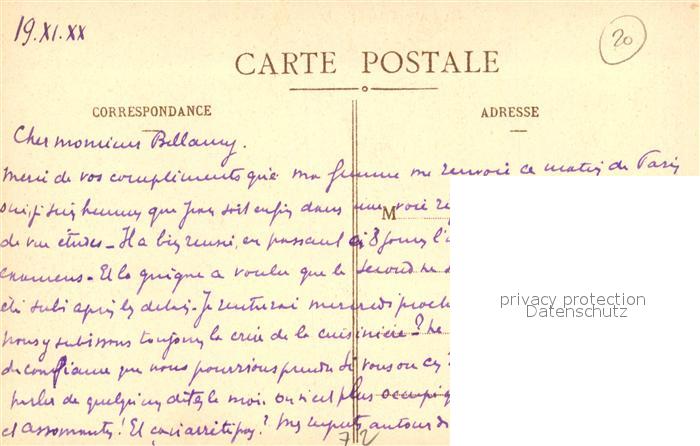 19.XI.XX
20
CARTE POSTALE
CORRESPONDANCE
ADRESSE
Cher monsieur Bellamy.
Merci de vos compliments que ma femme me renvoie ce matin de Paris
oui, je suis heureux que Jean soit enfin dans une voie
M
de vue études - Il a bien réussi, en passant en 8 jours
examens - Et la guigne a voulu que le second ne
été subi après les délais. Je rentrerai mercredi
nous y subissons toujours la crise de la cuisinière?
de confiance que nous pourrions prendre Si vous
parler de quelqu'un dites le moi. on n'est plus occupé
et assommants! Et autour
privacy protection
Datenschutz
72